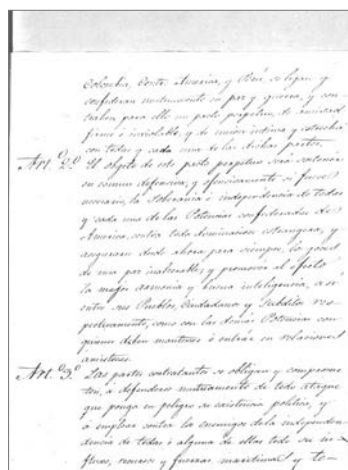 Colombia, Centro America, y Perú se ligan y
confederan mutuamente en paz y guerra, y con
traben para ello un pacto perpetuo, de amistad
firme e inviolable, y de union intima y estrecha
con todas y cada una de las dichas partes.
Art. 2.º El objeto de este pacto perpetuo será sostener
en comun defensiva, y ofensivamente si fuere
necesario, la Soberania e independencia de todas
y cada una de las Potencias confederadas de
America, contra toda dominacion estrangera, y
asegurarse desde ahora para siempre, los goces
de una paz inalterable, y promover al efecto
la mejor armonia y buena inteligencia, asi
entre sus Pueblos, Ciudadanos y Subditos res
pectivamente, como con las demás Potencias con
quienes deben mantener ó entrar en relaciones
amistosas.
Art. 3.º Las partes contratantes se obligan y comprome
ten, á defenderse mutuamente de todo ataque
que ponga en peligro su existencia politica, y
á emplear contra los enemigos de la independen
dencia de todas ó alguna de ellas todo su in
flujo, recursos y fuerzas maritimas y te-